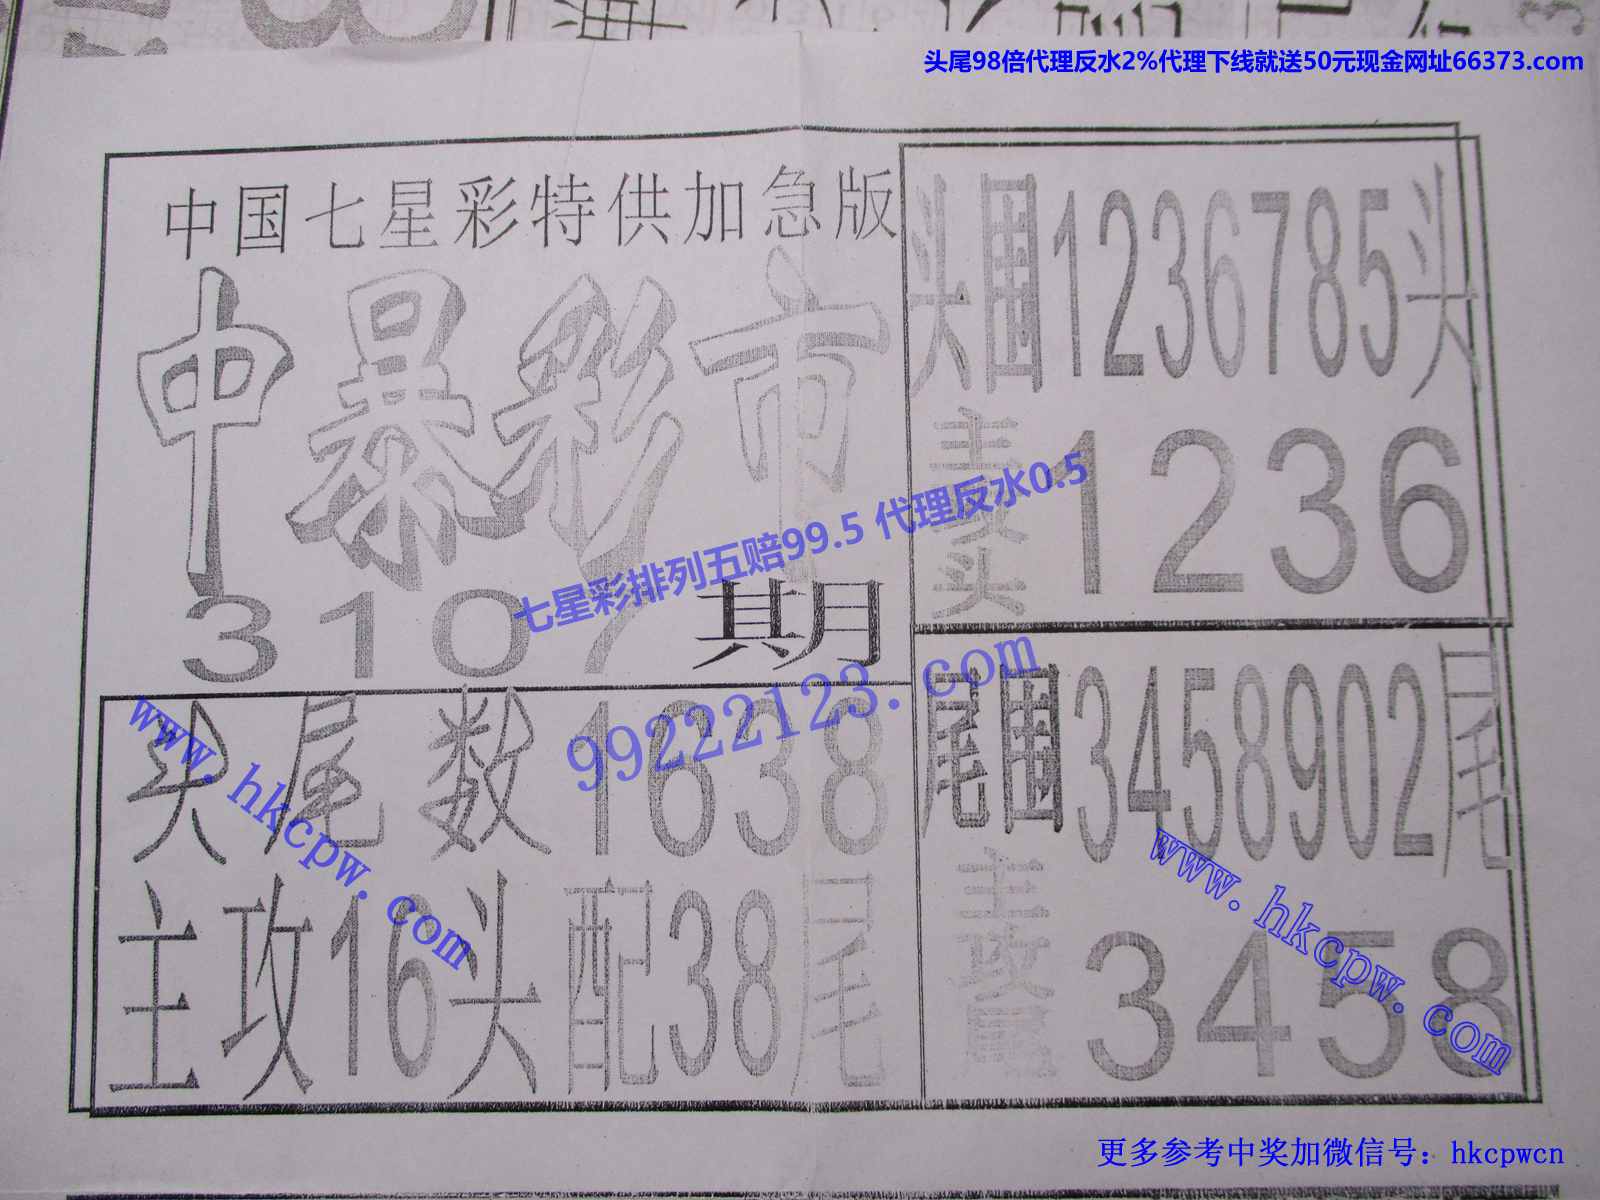 头尾98倍代理反水2%代理下线就送50元现金网址66373.com
中国七星彩特供加急版
中暴彩市
3107期
头尾数1638
主攻16头配38尾
头围1236785头
主攻头1236
尾围3458902尾
主攻尾3458
七星彩排列五赔99.5 代理反水0.5
99222123.com
www.hkcpw.com
www.hkcpw.com
更多参考中奖加微信号：hkcpwcn